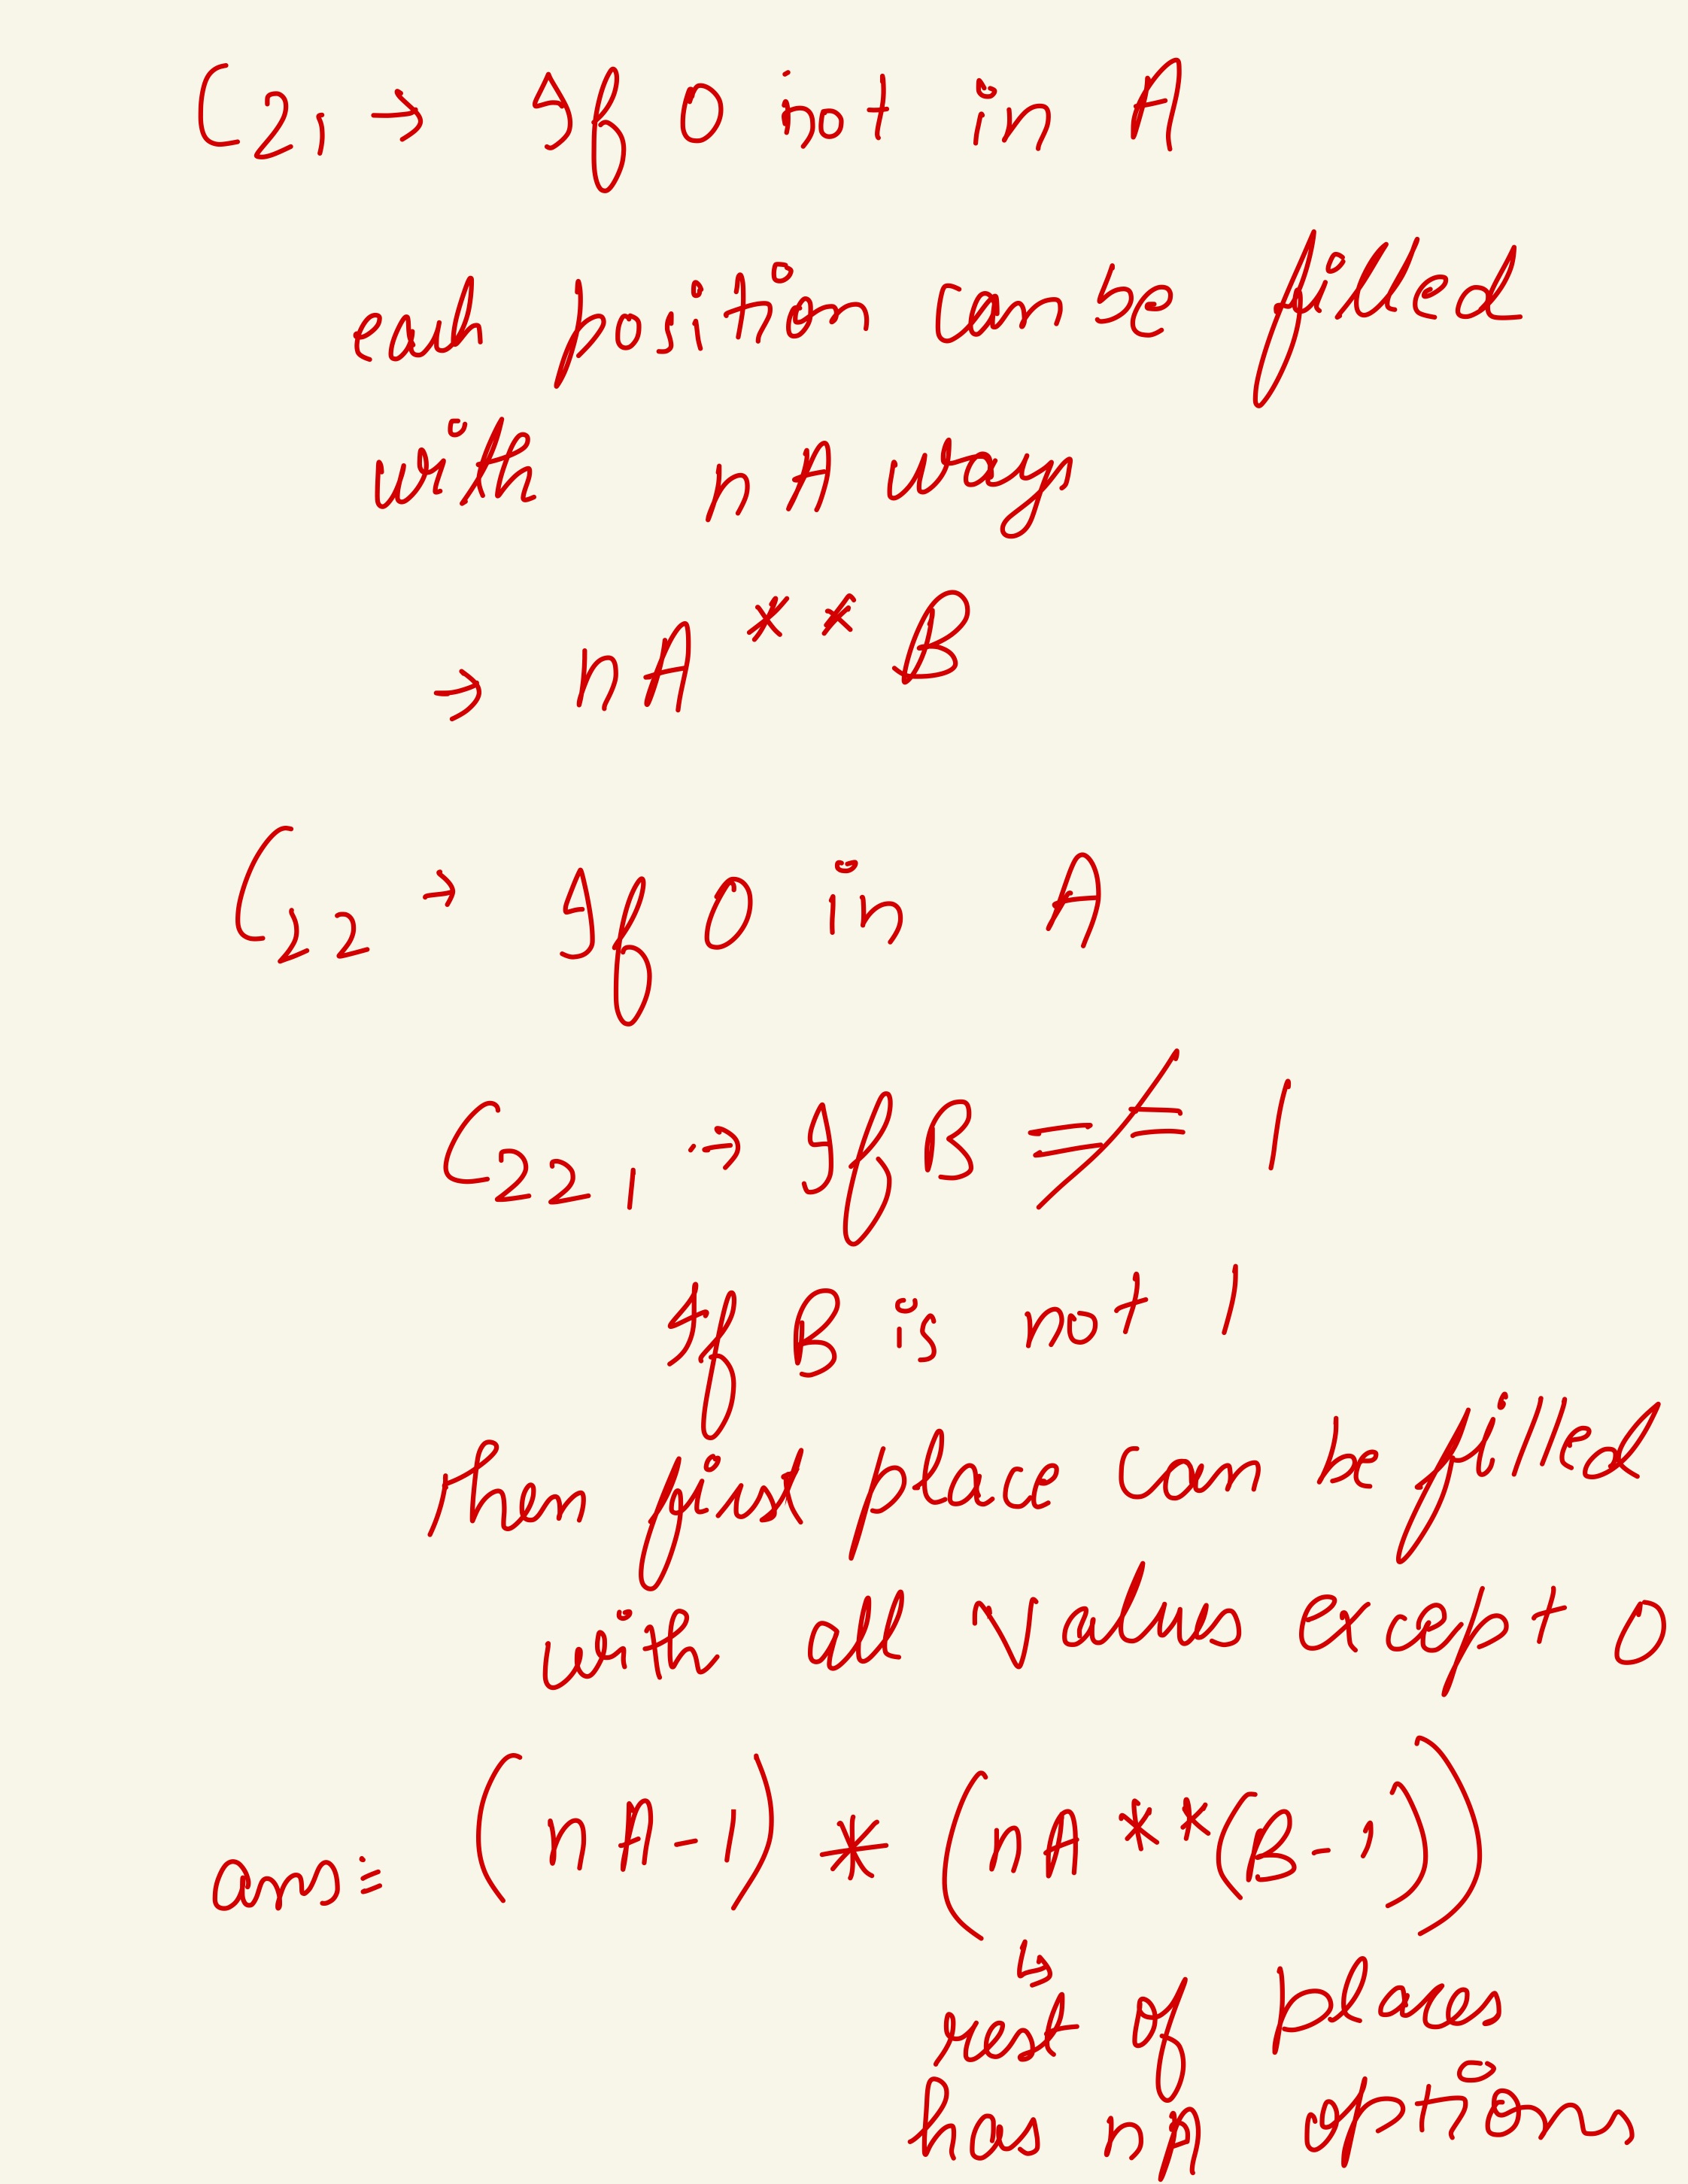 C21 → If 0 not in A
each position can be filled
with nA ways
→ nA ** B
C22 → If 0 in A
C221 → If B ≠ 1
If B is not 1
then first place can be filled
with all values except 0
ans = (nA - 1) * (nA ** (B - 1))
↳
rest of places
has nA options